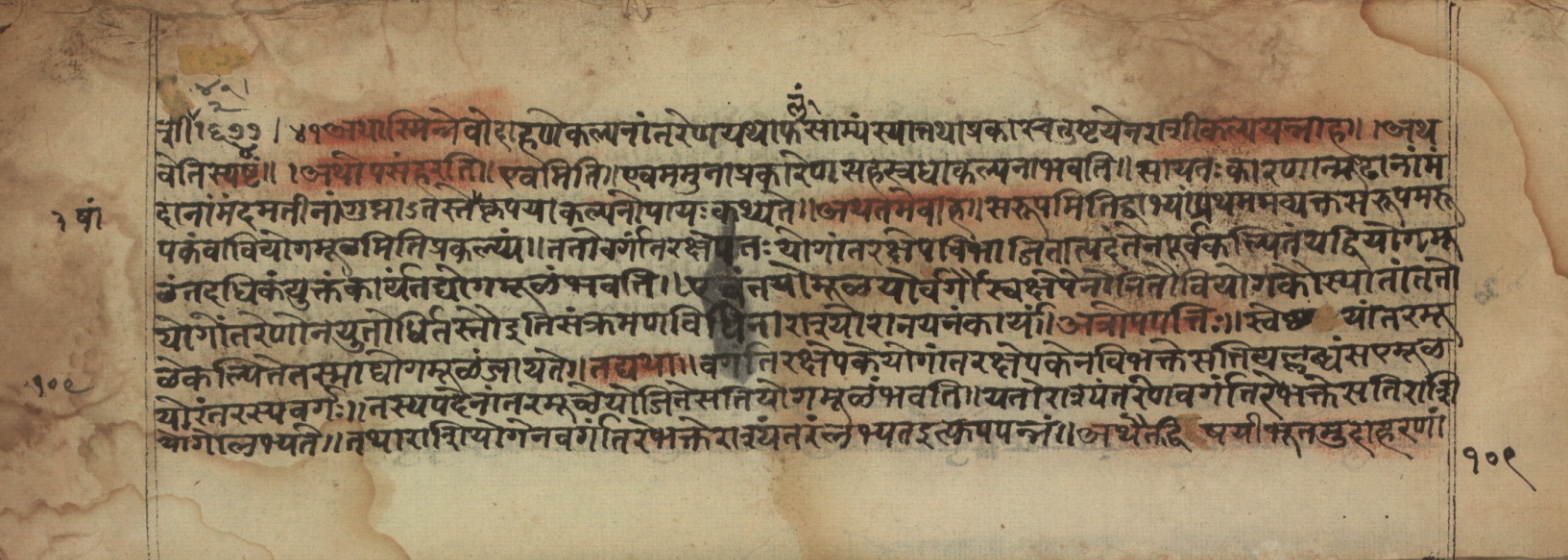 ४१
शी ६७७ । ४१ अथास्मिन्नेवोदाहरणे कल्पनांतरेण यथा फलसाम्यं स्यात्तथा प्रकारचतुष्टयेन राशी कल्पयन्नाह ॥ । अथ
वेति स्पष्टं ॥ । अथोपसंहरति ॥ एवमिति ॥ एवममुना प्रकारेण सहस्रधा कल्पना भवति ॥ सा यतः कारणान्मूढानां मं
दानां मंदमतीनां गुप्ताऽतस्तेषां कृपया कल्पनोपायः कथ्यते ॥ अथ तमेवाह ॥ सरूपमिति द्वाभ्यां प्रथममव्यक्तं सरूपमरू
पकं वा वियोगमूळमिति प्रकल्प्यं ॥ ततो वर्गांतरक्षेपतः योगांतरक्षेपविभाजितात्पदं तेन पूर्वकल्पितं यद्वियोगमू
ळं तदधिकं युक्तं कार्यं तद्योगमूळं भवति ॥ तयोमूळयोर्वर्गौ स्वक्षेपेनोनितौ वियोगकौ स्यातां ततो
योगोंतरेणोनयुतोर्धितस्तौ इति संक्रमणविधिना राश्योरानयनं कार्यं ॥ अत्रोपपत्तिः ॥ स्वे यांतरमू
ळे कल्पिते तस्माद्योगमूळं जायते ॥ तद्यथा ॥ वर्गांतरक्षेपके योगांतरक्षेपकेन विभक्ते सति यल्लब्धं स मूळ
योरंतरस्य वर्गः ॥ तस्य पदेनांतरमूळे योजिते सति योगमूळं भवति ॥ यतो राश्यंतरेण वर्गांतरे भक्ते सति राशि
योगो लभ्यते ॥ तथा राशियोगेन वर्गांतरे भक्ते राश्यंतरं लभ्यत इत्युपपन्नं ॥ अथैतद्वि षयीभूतमुदाहरणं
३ षां
१०९
१०९